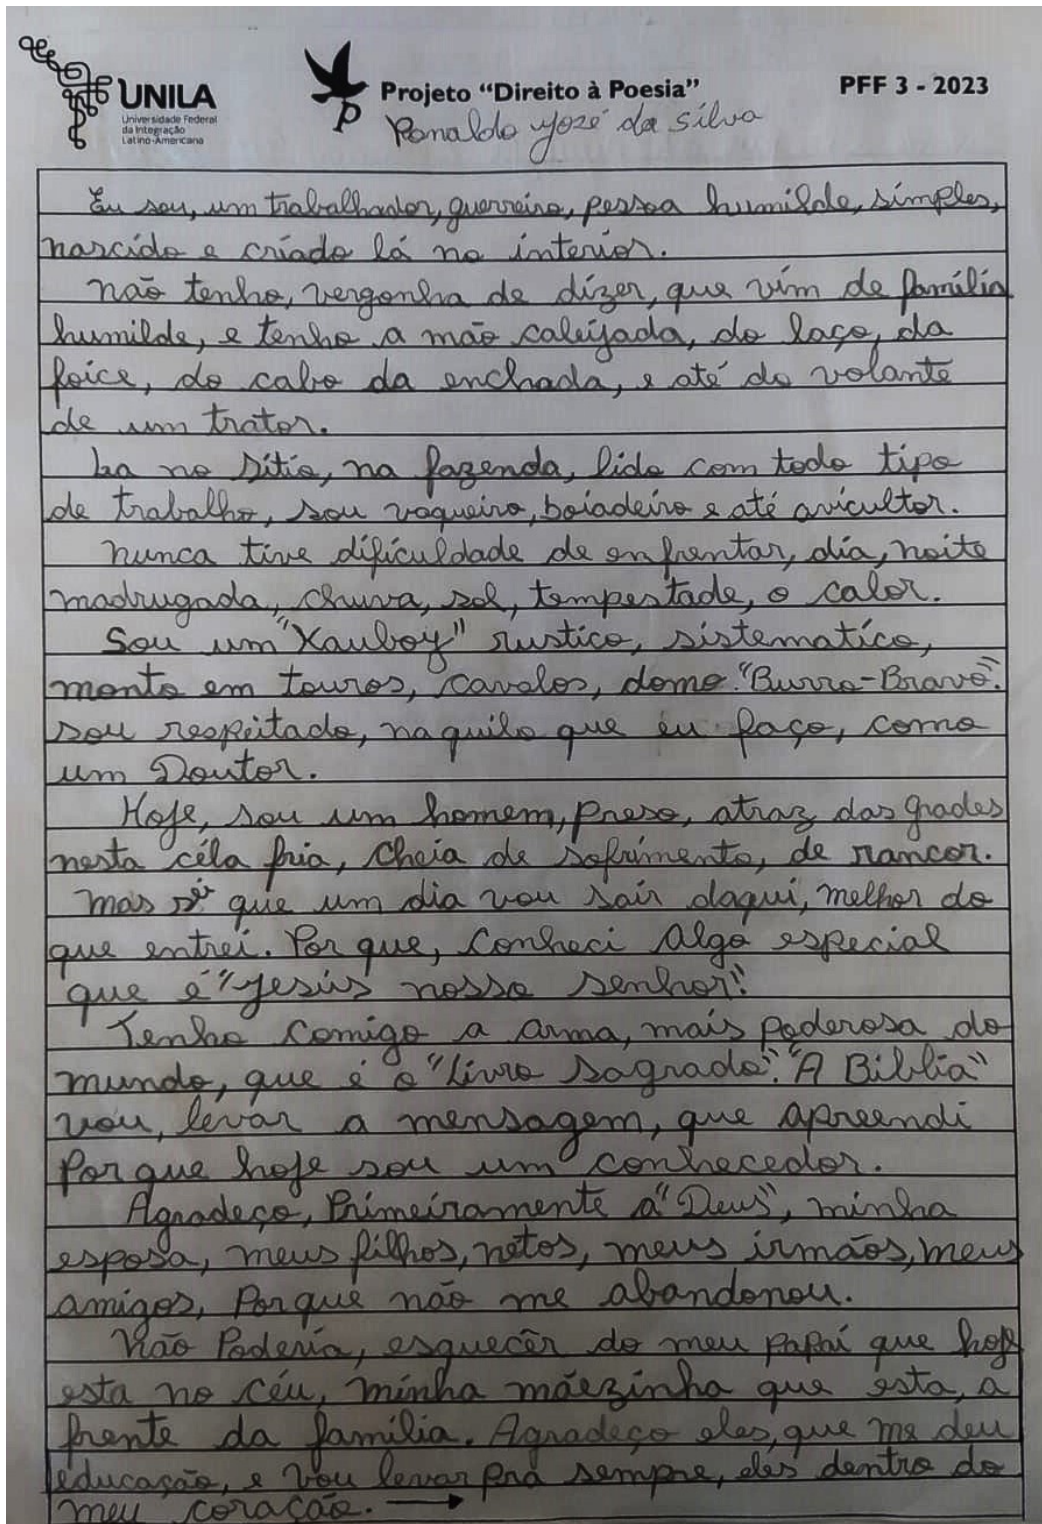 UNILA
Universidade Federal
da Integração
Latino-Americana
Projeto "Direito à Poesia"
PFF 3 - 2023
Ronaldo José da Silva
Eu sou, um trabalhador, guerreiro, pessoa humilde, símples,
nascído e críado lá no ínterior.
não tenho, vergonha de dízer, que vím de família
humilde, e tenho a mão caleijada, do laço, da
foice, do cabo da enchada, e até do volante
de um trator.
La no Sítio, na fazenda, lido com todo típo
de trabalho, sou vaqueiro, boiadeiro e até avícultor.
nunca tíve dífículdade de enfrentar, día, noite
madrugada, chuva, sol, tempestade, o calor.
Sou um "Xauboy" rustico, sístematíco,
monto em touros, cavalos, domo "Burro-Bravo".
sou respeitado, naquilo que eu faço, como
um Doutor.
Hoje, sou um homem, preso, atraz das grades
nesta céla fria, cheia de sofrímento, de rancor.
mas sei que um dia vou sair daqui, melhor do
que entrei. Por que, conheci Algo especial
que é "Jesús nosso senhor".
Tenho comigo a arma, maís poderosa do
mundo, que é o "Livro sagrado". "A Bíblia"
vou, levar a mensagem, que apreendi
Por que hoje sou um conhecedor.
Agradeço, Primeíramente a "Deus", mínha
esposa, meus filhos, netos, meus írmãos, meus
amigos, Porque não me abandonou.
Não Podería, esquecêr do meu papaí que hoje
esta no céu, mínha mãezinha que esta, a
frente da família. Agradeço eles, que me deu
educação, e vou levar pra sempre, eles dentro do
meu coração. →